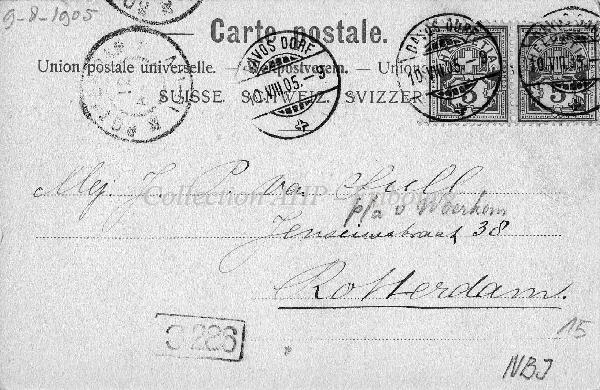 9-8-1905
Carte postale.
Union postale universelle. — Weltpostverein. — Unione
SUISSE. SCHWEIZ. SVIZZERA
DAVOS DORF
10.VIII.05.-9
10.VIII.05.-9
5
5
Mej. J. P. van
p/a v Woerkom
38
Rotterdam.
Collection AHP
S 226
15
NBJ